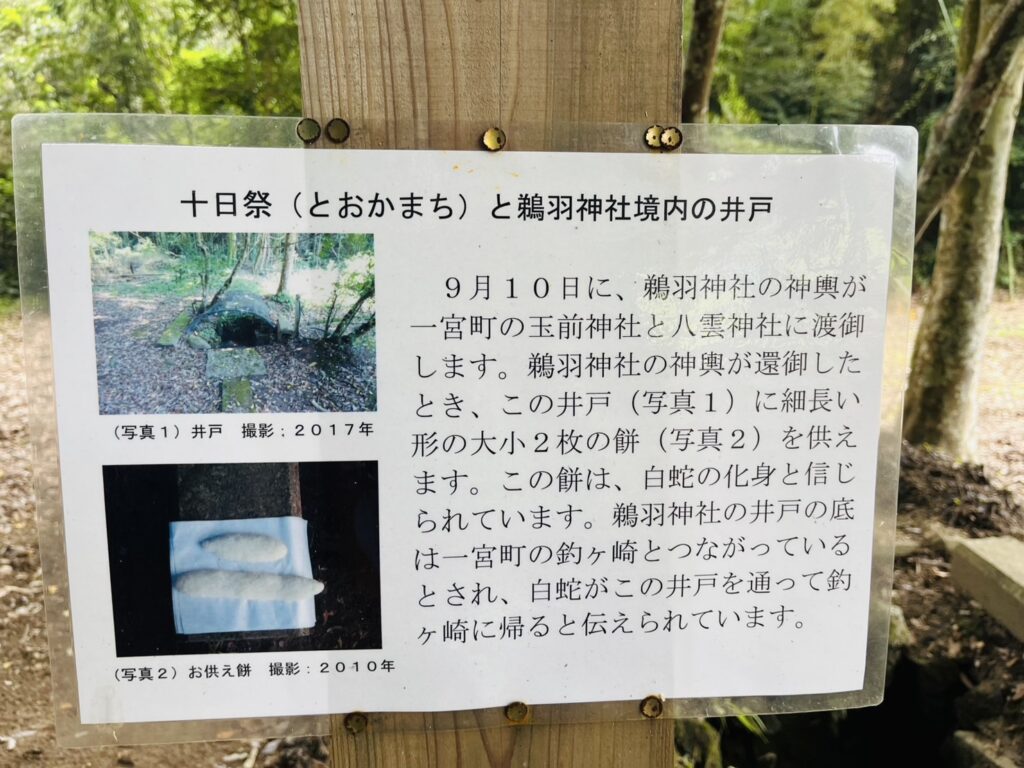 十日祭（とおかまち）と鵜羽神社境内の井戸
（写真１）井戸　撮影：２０１７年
（写真２）お供え餅　撮影：２０１０年
９月１０日に、鵜羽神社の神輿が
一宮町の玉前神社と八雲神社に渡御
します。鵜羽神社の神輿が還御した
とき、この井戸（写真１）に細長い
形の大小２枚の餅（写真２）を供え
ます。この餅は、白蛇の化身と信じ
られています。鵜羽神社の井戸の底
は一宮町の釣ヶ崎とつながっている
とされ、白蛇がこの井戸を通って釣
ヶ崎に帰ると伝えられています。